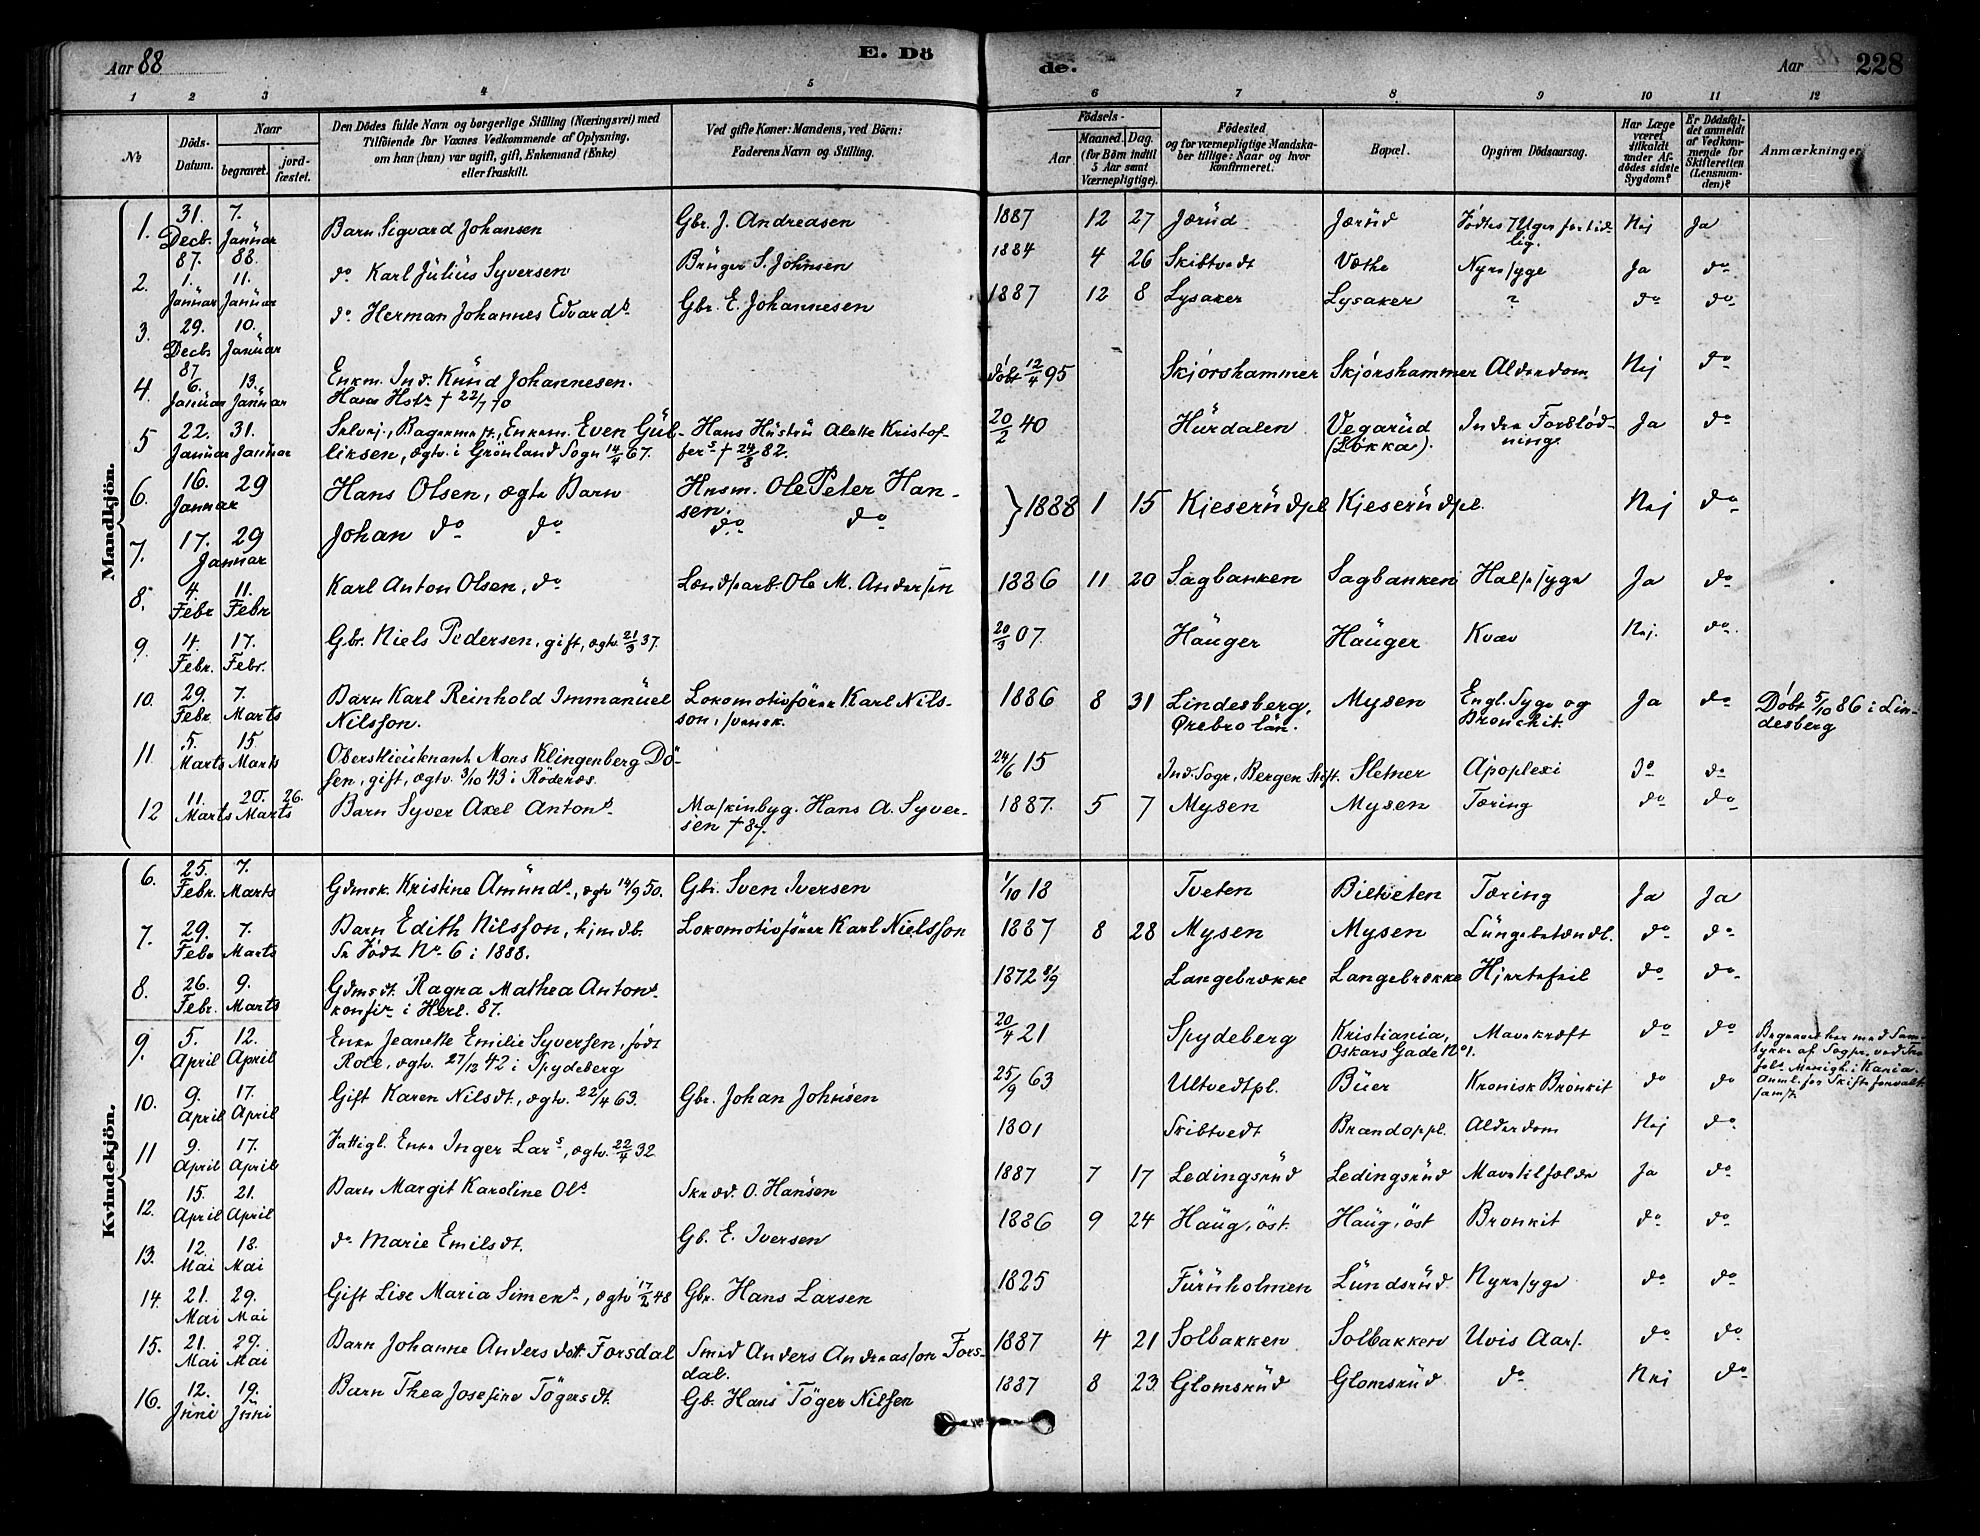 Aar 88
E. Dö
de.
Aar
228
1 2 3 4 5 6 7 8 9 10 11 12
No
Döds-Datum.
Naar
begravet.
jord-fæstet.
Den Dödes fulde Navn og borgerlige Stilling (Næringsvei) med
Tilföiende for Voxnes Vedkommende af Oplysning,
om han (hun) var ugift, gift, Enkemand (Enke)
eller fraskilt.
Ved gifte Koner: Mandens, ved Börn:
Faderens Navn og Stilling.
Födsels-
Aar
Maaned. Dag.
(for Børn indtil
5 Aar samt
Værnepligtige).
Födested
og for værnepligtige Mandska-
ber tillige: Naar og hvor
konfirmeret.
Bopæl.
Opgiven Dödsaarsag.
Har Læge
været
tilkaldt
under Af-
dödes sidste
Sygdom?
Er Dödsfal-
det anmeldt
af Vedkom-
mende for
Skifteretten
(Lensman-
den)?
Anmærkninger
Mandkjön.
1. 31. Decb. 87. 7. Januar 88. Barn Sigvard Johansen Gbr. J. Andreasen 1887 12 27 Jærüd Jærüd Födtes 7 Uger fortid-lig. Nej Ja
2. 1. Januar 11. Januar do Karl Julius Syversen Brüger S. Johnsen 1884 4 26 Skibtvedt Væthe Nyresyge Ja do
3. 29. Decb. 87 10. Januar do Herman Johannes Edvards. Gbr. E. Johannesen 1887 12 8 Lysaker Lysaker ? do do
4. 6. Januar 13. Januar Enkm. Ind. Knüd Johannesen. Hans Hstr † 22/7 70 döbt 12/4 95 Skjörshammer Skjörshammer Alderdom Nej do
5 22. Januar 31. Januar Selvej., Bagermst., Enkem. Even Gül-liksen, egtv. i Grönland Sogn 14/4 67. Hans Hüstrü Alette Kristof-fers † 24/8 82. 20/2 40 Hürdalen Vegarüd (Lökka). Indre Forblöd-ning. Ja do
6. 16. Januar 29 Hans Olsen, ægte Barn Husm. Ole Peter Han-sen. } 1888 1 15 Kjeserüdpl Kjeserüdpl. Nej do
7. 17. Januar 29 Johan do do do do
8. 4. Febr 11. Febr Karl Anton Olsen, do Landparb. Ole M. Andersen 1886 11 20 Sagbanken Sagbanken Halssyge Ja do
9. 4. Febr. 17. Febr. Gbr. Niels Pedersen, gift, ægtv. 21/3 37. 20/3 07. Haüger Haüger Kvav Nej. do
10. 29. Febr. 7. Marts Barn Karl Reinhold Immanüel Nilsson. Lokomotivförer Karl Nils-son, svensk. 1886 8 31 Lindesberg, Ørebro län. Mysen Engl. Syge og Bronchit. Ja do Döbt 5/10 86 i Lin-desberg
11. 5. Marts 15 Marts Oberstlieutenant Mons Klingenberg Dö-sen, gift, ægtv. 3/10 43 i Rödenæs. 24/6 15 Ind. Sogn, Bergen Stift. Sletner Apoplexi do do
12 11. Marts 20. Marts 26. Barn Syver Axel Antons. Maskinbyg. Hans A. Syver-sen † 87. 1887. 5 7 Mysen Mysen Tæring do do
Kvindekjön.
6. 25. Febr. 7. Marts Gdmsk. Kristine Amünds., ægtv 14/9 50. Gbr. Sven Iversen 1/10 18 Tveten Biltveten Tæring Ja Ja
7. 29. Febr 7. Marts Barn Edith Nilsson, hjmdb. Se Födt No 6 i 1888. Lokomotivförer Karl Nielsson 1887 8 28 Mysen Mysen Lüngebetændl. do do
8. 26. Febr. 9. Marts Gdmsdt. Ragna Mathea Antons. konfir. i Herl. 87. 1872 8/9 Langebrække Langebrække Hjertefeil do do
9. 5. April 12. April Enke Jeanette Emilie Syversen, födt Roce, ægtv. 27/12 42 i Spydeberg 20/4 21 Spydeberg Kristiania, Oskars Gade No 1. Mavekræft do do Begravet her med Sam-tykke af Sogpr. ved Tro-folt. Menigh. i Kania. Anml. for Skifteforvalt. samst.
10. 9. April 17. April Gift Karen Nilsdt., ægtv. 22/4 63. Gbr. Johan Johnsen 25/9 63 Ultvedtpl. Büer Kronisk Bronkit do do
11 9. April 17. April Fattigl. Enke Inger Lars, ægtv. 22/4 32 1801 Skibtvedt Brandoppl. Alderdom Nej do
12. 15. April 21. April Barn Margit Karoline Ols. Skræd. O. Hansen 1887 7 17 Ledingsrüd Ledingsrüd Mavetilfælde Ja do
13. 12. Mai 18. Mai do Marie Emilsdt. Gb. E. Iversen 1886 9 24 Haüg, öst. Haüg, öst Bronkit do do
14. 21. Mai 29. Mai Gift Lise Maria Simens., ægtv 17/2 48 Gbr. Hans Larsen 1825 Fürüholmen Lündsrüd Nyresyge do do
15. 21. Mai 29. Mai Barn Johanne Andersdatt. Forsdal Smed Anders Andreasson Fors-dal. 1887 4 21 Solbakken Solbakken Uvis Aars. do do
16. 12. Jüni 19. Jüni Barn Thea Josefine Tögersdt. Gb. Hans Töger Nilsen 1887 8 23 Glomsrüd Glomsrüd do Nej do